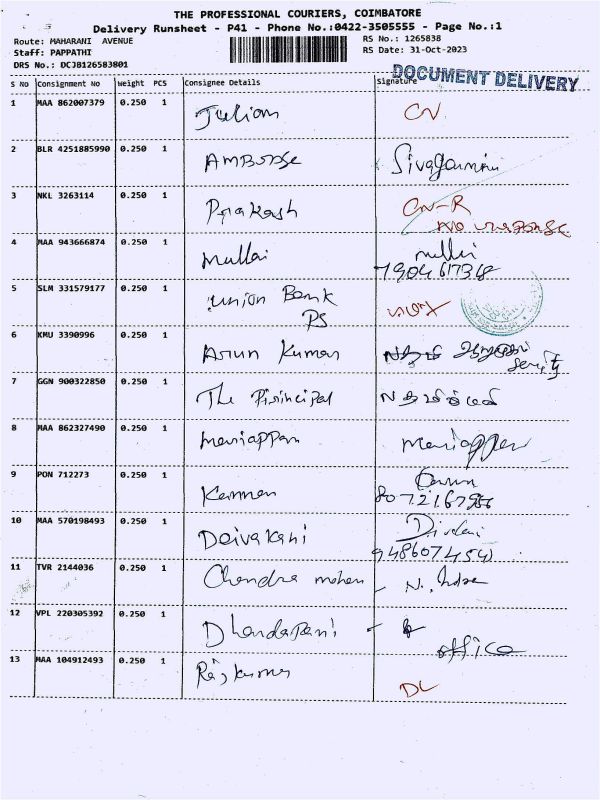 THE PROFESSIONAL COURIERS, COIMBATORE
Delivery Runsheet - P41 - Phone No.:0422-3505555 - Page No.:1
Route: MAHARANI AVENUE RS No.: 1265838
Staff: PAPPATHI RS Date: 31-Oct-2023
DRS No.: DCJB126583801
DOCUMENT DELIVERY
S No Consignment No Weight PCS Consignee Details Signature
1 MAA 862007379 0.250 1 Julian CN
2 BLR 4251885990 0.250 1 AMBROSE Sivagamini
3 NKL 3263114 0.250 1 Prakash CN-R
4 MAA 943666874 0.250 1 Mullai mullai
7904617348
5 SLM 331579177 0.250 1 Union Bank
PS
6 KMU 3390996 0.250 1 Arun Kumar
7 GGN 900322850 0.250 1 The Pirincipal
8 MAA 862327490 0.250 1 Mariappan Mariappan
9 PON 712273 0.250 1 Kannan
8072167956
10 MAA 570198493 0.250 1 Deivakani
9486074541
11 TVR 2144036 0.250 1 Chandra mohan N.
12 VPL 220305392 0.250 1 Dhandapani
office
13 MAA 104912493 0.250 1 Rajkumar DL